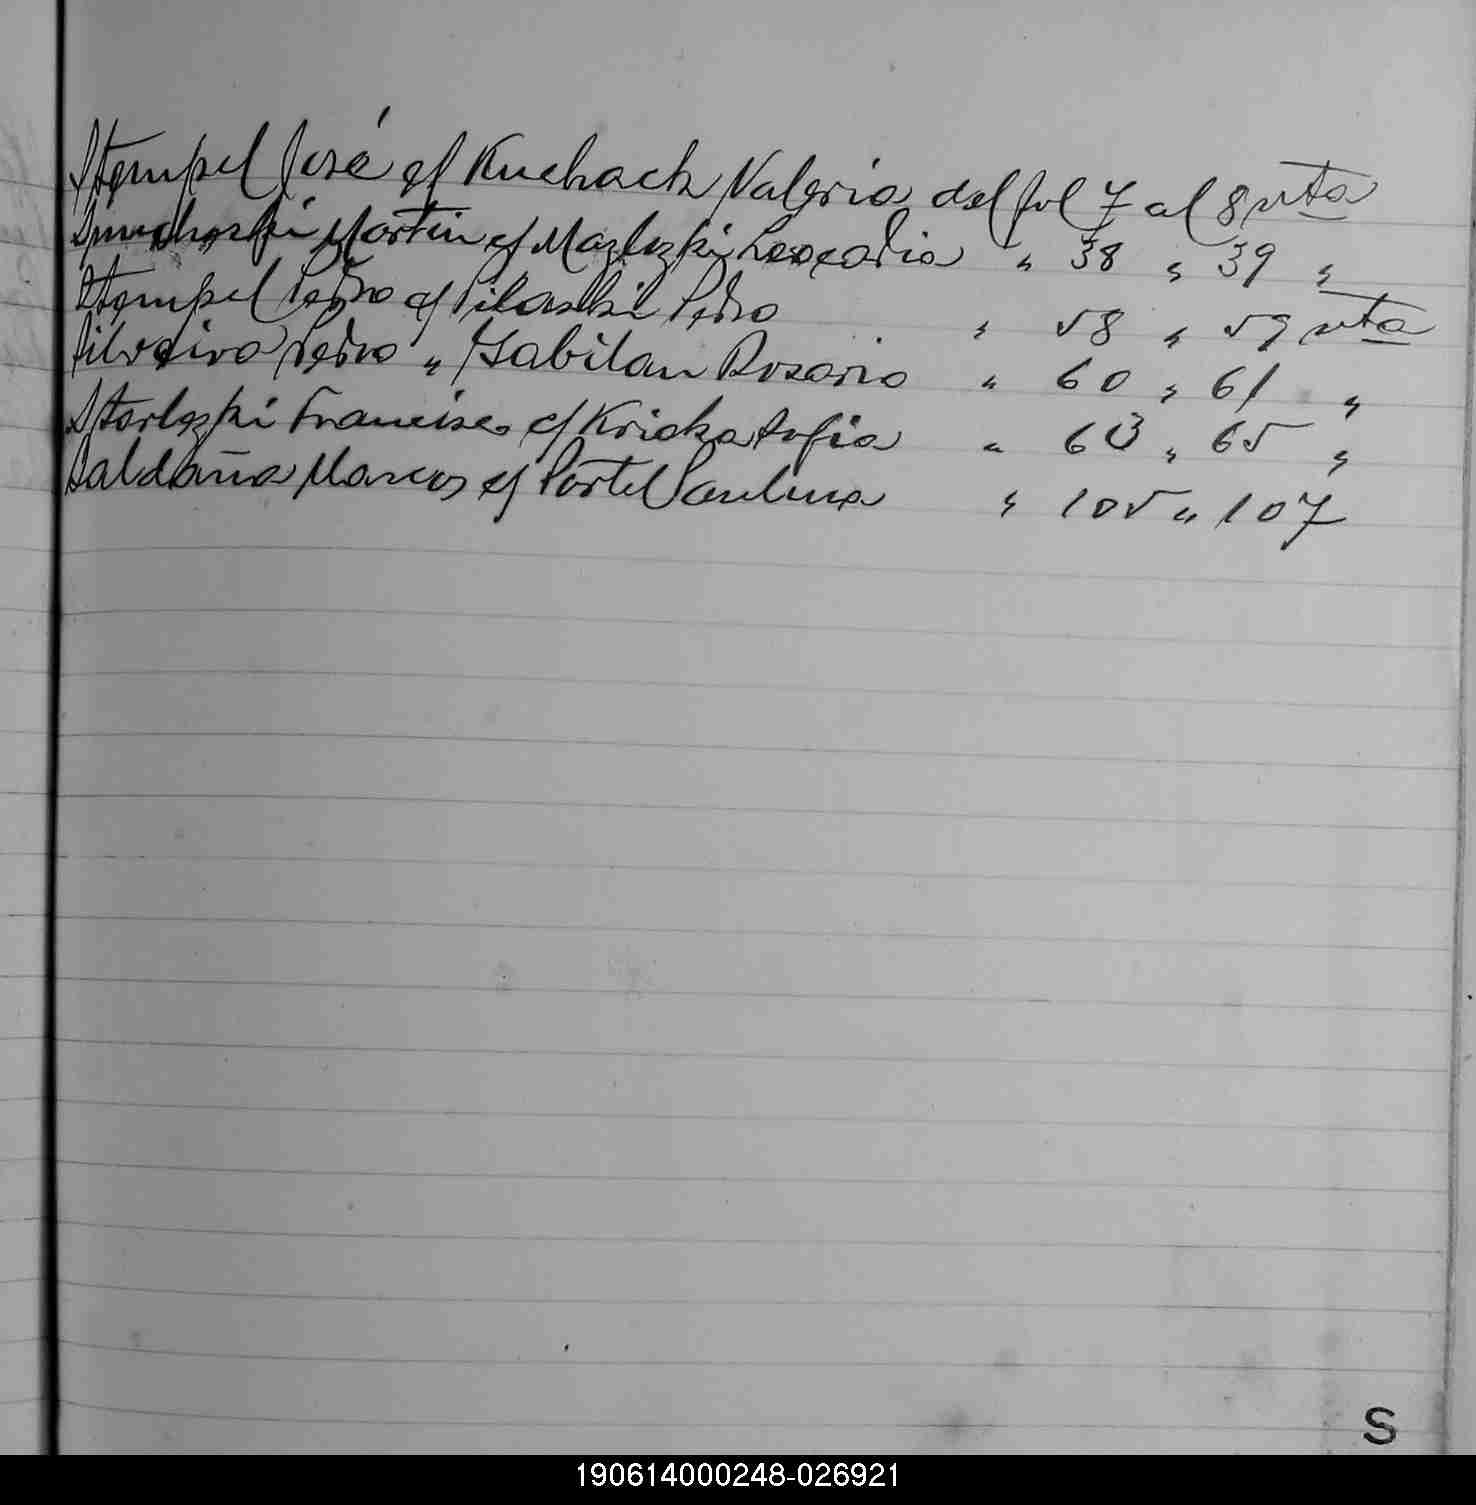 Stempel José c/ Kuchach Valeria del fol 7 al 8 vta
Martin c/ Mazlezki Leocadia " 38 " 39 "
Stempel Pedro c/ Pilaski Pedro " 58 " 59 vta
Silveira Pedro " Gabilan Rosario " 60 " 61 "
Starlezki Francisco c/ Kricka Sofia " 63 " 65 "
Saldaña Marcos c/ Portel Paulina " 105 " 107
S
190614000248-026921